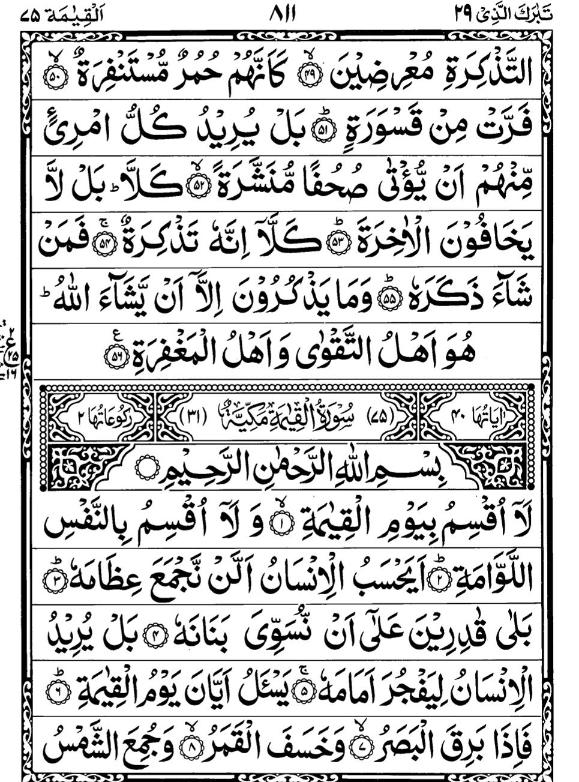 تَبٰرَكَ الَّذِىْ ٢٩ ٨١١ اَلْقِيٰمَة ٧٥
التَّذْكِرَةِ مُعْرِضِيْنَ ﴿٤٩﴾ۙ كَاَنَّهُمْ حُمُرٌ مُّسْتَنْفِرَةٌ ﴿٥٠﴾ۙ
فَرَّتْ مِنْ قَسْوَرَةٍ ﴿٥١﴾ؕ بَلْ يُرِيْدُ كُلُّ امْرِئٍ
مِّنْهُمْ اَنْ يُّؤْتٰى صُحُفًا مُّنَشَّرَةً ﴿٥٢﴾ۙ كَلَّا ؕ بَلْ لَّا
يَخَافُوْنَ الْاٰخِرَةَ ﴿٥٣﴾ؕ كَلَّاۤ اِنَّهٗ تَذْكِرَةٌ ﴿٥٤﴾ۚ فَمَنْ
شَآءَ ذَكَرَهٗ ﴿٥٥﴾ؕ وَمَا يَذْكُرُوْنَ اِلَّاۤ اَنْ يَّشَآءَ اللّٰهُ ؕ
هُوَ اَهْلُ التَّقْوٰى وَاَهْلُ الْمَغْفِرَةِ ﴿٥٦﴾ع
٢
ع
٢٥
١٦
اٰيَاتُهَا ٤٠ (٧٥) سُوْرَةُ الْقِيٰمَةِ مَكِّيَّةٌ (٣١) رُكُوْعَاتُهَا ٢
بِسْمِ اللّٰهِ الرَّحْمٰنِ الرَّحِيْمِ
لَاۤ اُقْسِمُ بِيَوْمِ الْقِيٰمَةِ ﴿١﴾ۙ وَ لَاۤ اُقْسِمُ بِالنَّفْسِ
اللَّوَّامَةِ ﴿٢﴾ؕ اَيَحْسَبُ الْاِنْسَانُ اَلَّنْ نَّجْمَعَ عِظَامَهٗ ﴿٣﴾ؕ
بَلٰى قٰدِرِيْنَ عَلٰٓى اَنْ نُّسَوِّىَ بَنَانَهٗ ﴿٤﴾ بَلْ يُرِيْدُ
الْاِنْسَانُ لِيَفْجُرَ اَمَامَهٗ ﴿٥﴾ۚ يَسْـَٔلُ اَيَّانَ يَوْمُ الْقِيٰمَةِ ﴿٦﴾ؕ
فَاِذَا بَرِقَ الْبَصَرُ ﴿٧﴾ۙ وَخَسَفَ الْقَمَرُ ﴿٨﴾ۙ وَجُمِعَ الشَّمْسُ